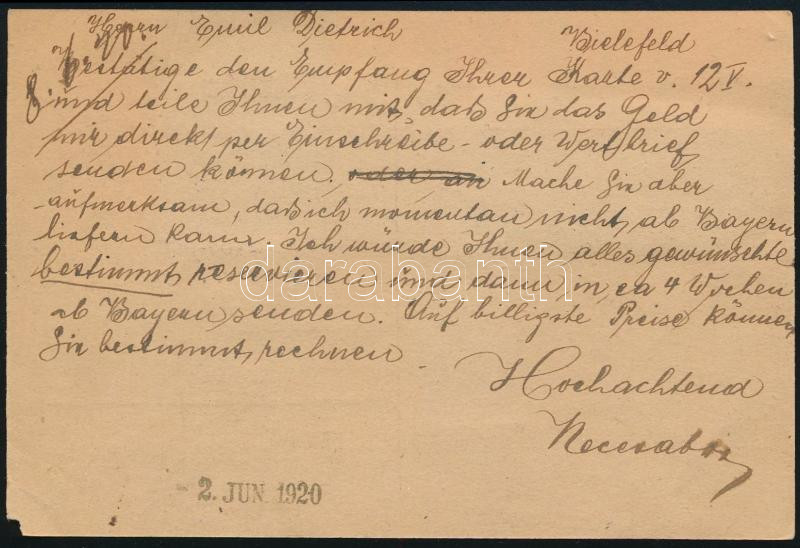 Herrn Emil Dietrich Bielefeld
Bestätige den Empfang Ihrer Karte v. 12 V.
und teile Ihnen mit, daß Sie das Geld
mir direkt per Einschreibe- oder Wertbrief
senden können. oder an Mache Sie aber
aufmerksam, daß ich momentan nicht ab Bayern
liefern kann. Ich würde Ihnen alles gewünschte
bestimmt reservieren und dann in ca 4 Wochen
ab Bayern senden. Auf billigste Preise können
Sie bestimmt rechnen
darabanth
Hochachtend
- 2. JUN. 1920